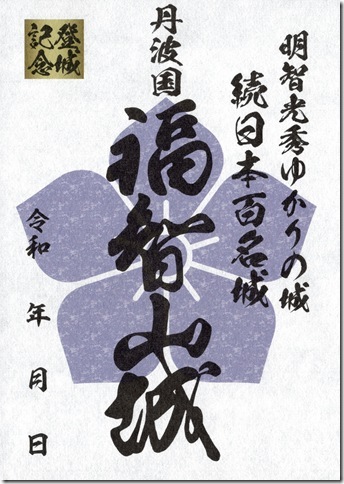 明智光秀ゆかりの城
続日本百名城
丹波国
福智山城
令和　年　月　日
登城
記念